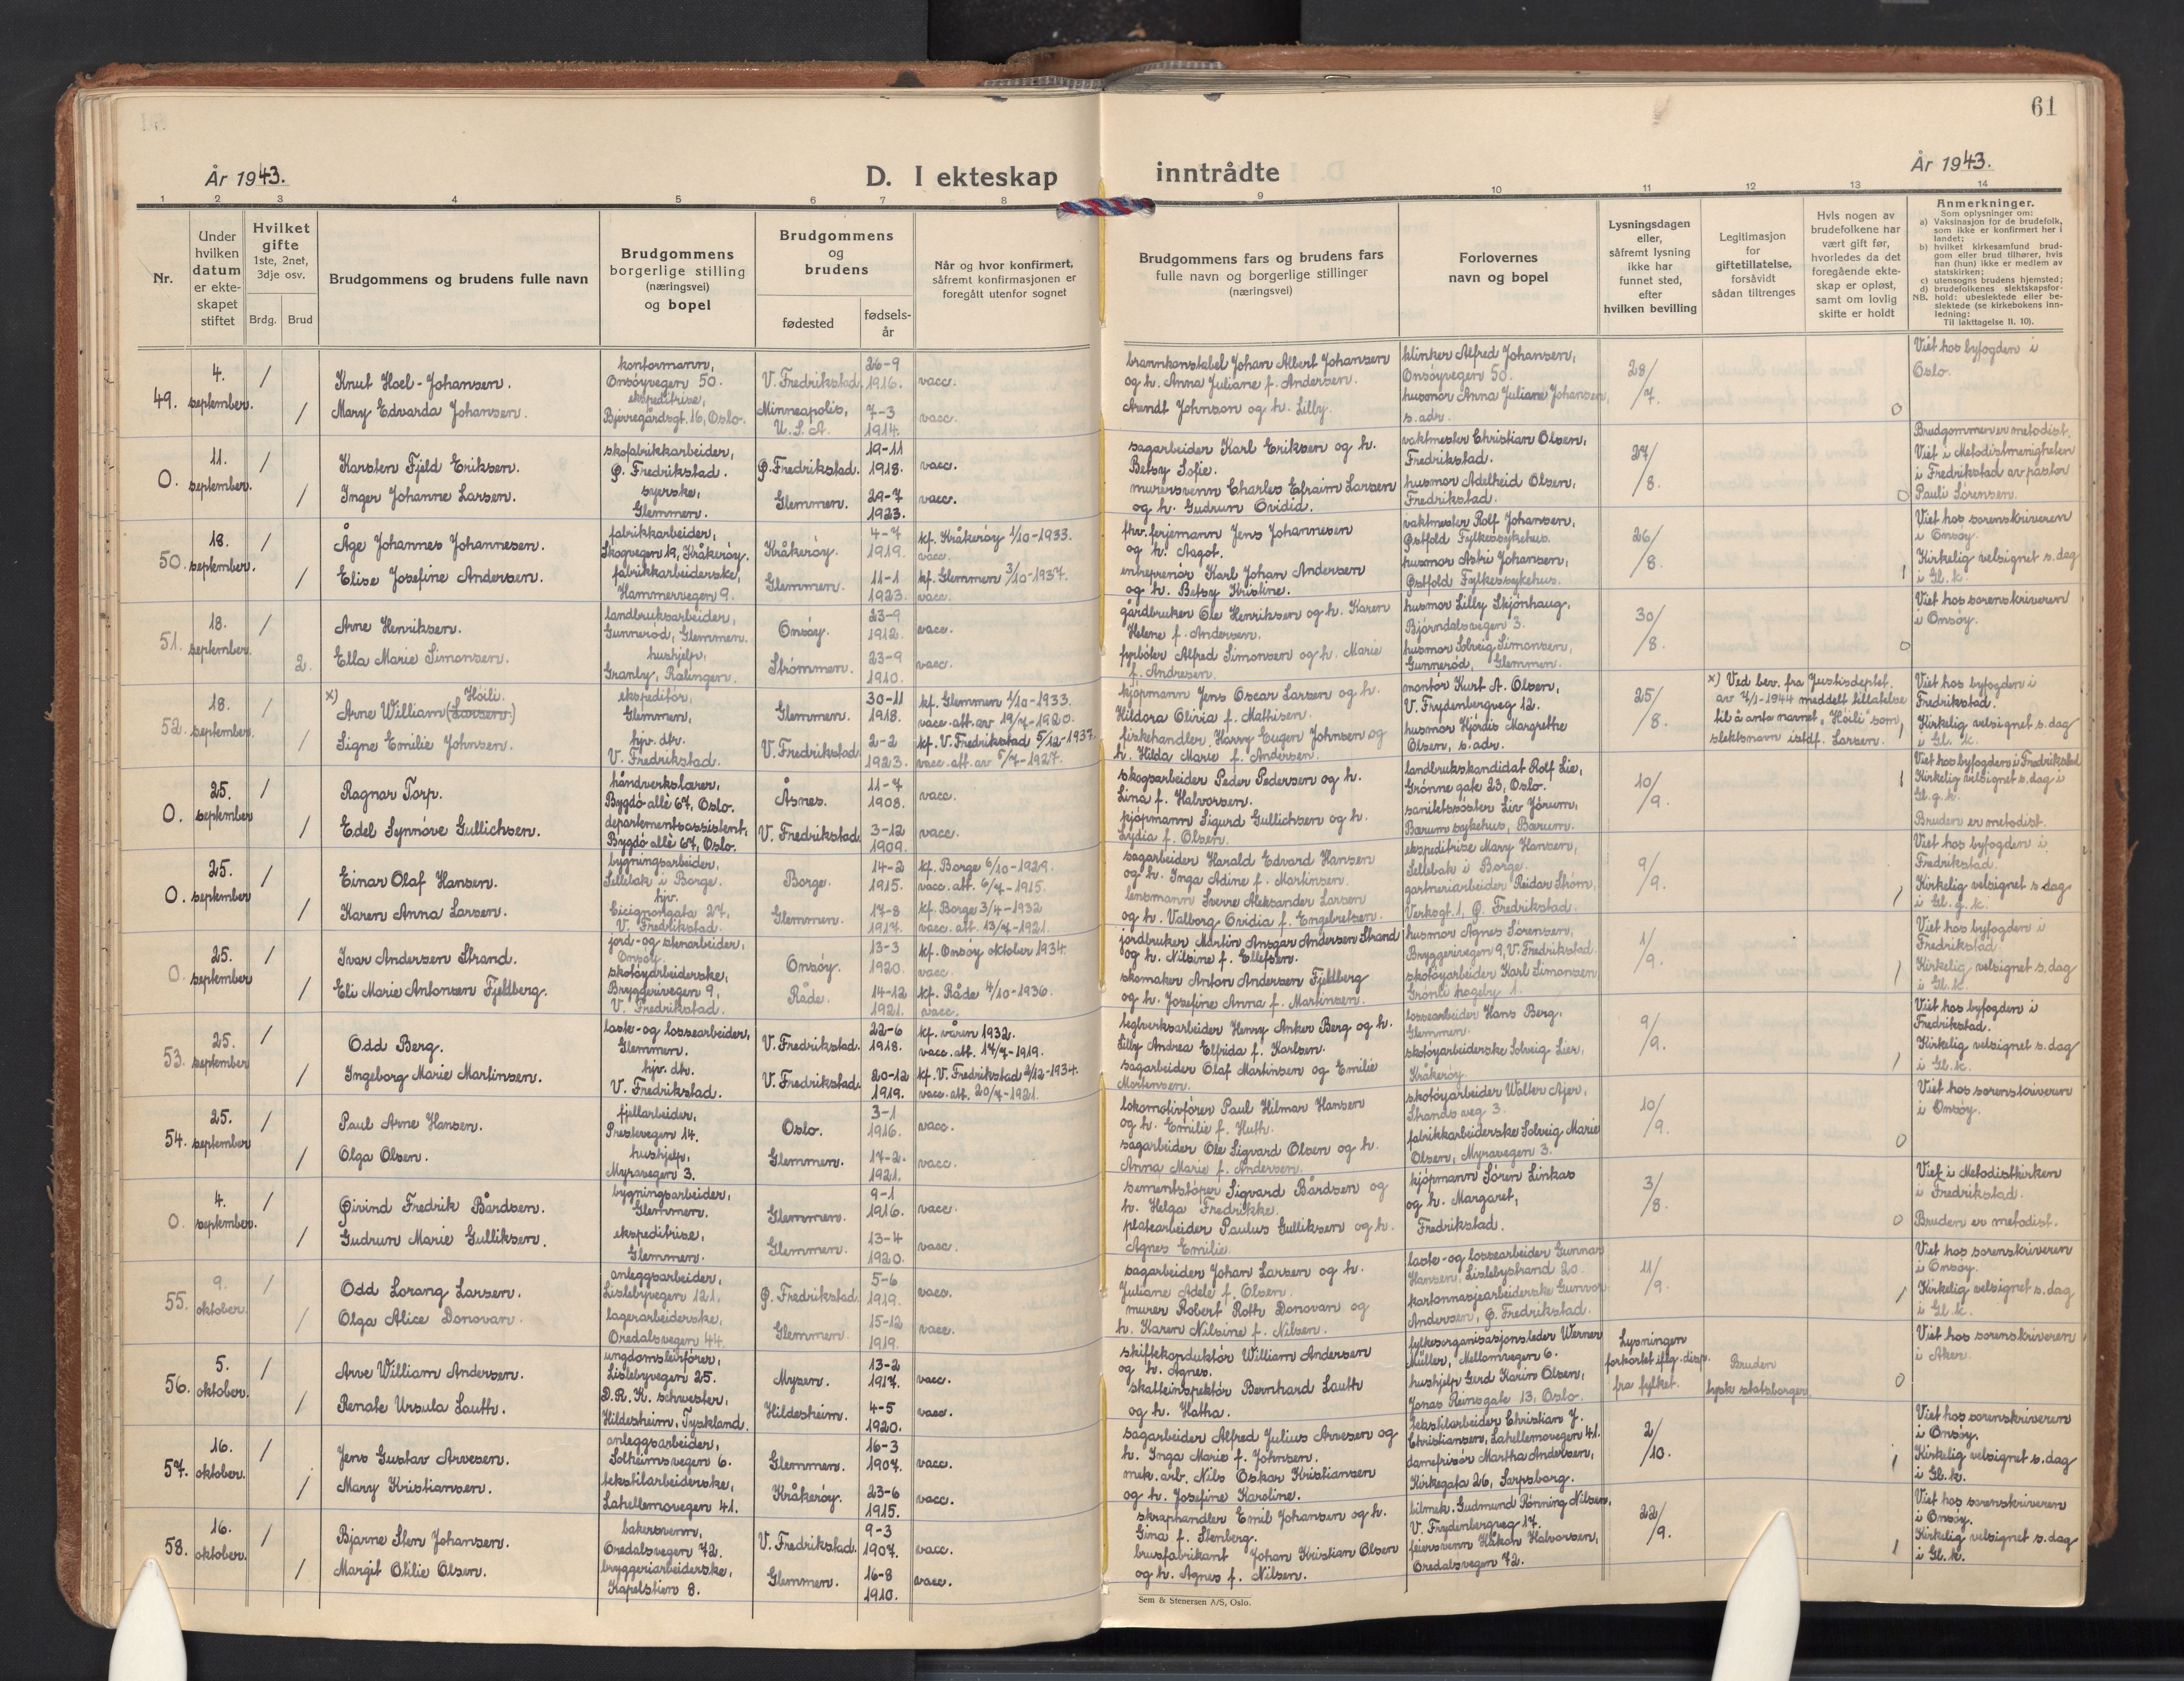 61
År 1943.
D. I ekteskap inntrådte
År 1943.
1 2 3 4 5 6 7 8 9 10 11 12 13 14
Nr.
Under hvilken datum er ekte-skapet stiftet
Hvilket gifte
1ste, 2net, 3dje osv.
Brdg. Brud
Brudgommens og brudens fulle navn
Brudgommens borgerlige stilling (næringsvei) og bopel
Brudgommens og brudens
fødested
fødsels-år
Når og hvor konfirmert, såfremt konfirmasjonen er foregått utenfor sognet
Brudgommens fars og brudens fars fulle navn og borgerlige stillinger (næringsvei)
Forlovernes navn og bopel
Lysningsdagen eller, såfremt lysning ikke har funnet sted, efter hvilken bevilling
Legitimasjon for giftetillatelse, forsåvidt sådan tiltrenges
Hvis nogen av brudefolkene har vært gift før, hvorledes da det foregående ekte-skap er opløst, samt om lovlig skifte er holdt
Anmerkninger.
Som oplysninger om:
a) Vaksinasjon for de brudefolk, som ikke er konfirmert her i landet;
b) hvilket kirkesamfund brud-gom eller brud tilhører, hvis han (hun) ikke er medlem av statskirken;
c) utensogns brudens hjemsted;
d) brudefolkenes slektskapsfor-hold: ubeslektede eller be-slektede (se kirkebokens inn-ledning:
NB. Til iakttagelse II. 10).
49. 4. september. / Knut Hoel-Johansen.
kontormann, Onsöyvegen 50.
V. Fredrikstad 26-9 1916. vacc.
brannkonstabel Johan Albert Johansen og h. Anna Juliane f. Andersen.
klinker Alfred Johansen, Onsöyvegen 50.
28/7.
Viet hos byfogden i Oslo.
/ Mary Edvarda Johansen.
ekspeditrise, Bjerregårdsgt. 16, Oslo.
Minneapolis, U. S. A. 7-3 1914. vacc.
Arendt Johnson og h. Lilly.
husmor Anna Juliane Johansen, s. adr.
0
0. 11. september. / Karsten Fjeld Eriksen.
skofabrikkarbeider, Ø. Fredrikstad.
Ø. Fredrikstad. 19-11 1918. vacc.
sagarbeider Karl Eriksen og h. Betsy Sofie.
vaktmester Christian Olsen, Fredrikstad.
27/8.
Brudgommen er metodist. Viet i Metodistmenigheten i Fredrikstad av pastor Pauli Sörensen.
/ Inger Johanne Larsen.
syerske, Glemmen.
Glemmen. 29-7 1923. vacc.
murersvenn Charles Efraim Larsen og h. Gudrun Ovidia.
husmor Adelheid Olsen, Fredrikstad.
0
50. 18. september. / Åge Johannes Johannesen.
fabrikkarbeider, Skogvegen 19, Kråkeröy.
Kråkeröy. 4-7 1919. kf. Kråkeröy 1/10-1933. vacc.
fhv. ferjemann Jens Johannesen og h. Aagot.
vaktmester Rolf Johansen, Østfold Fylkessykehus.
26/8.
Viet hos sorenskriveren i Onsöy. Kirkelig velsignet s. dag i Gl. k.
/ Elise Josefine Andersen.
fabrikkarbeiderske, Hammervegen 9.
Glemmen. 11-1 1923. kf. Glemmen 3/10-1937. vacc.
entreprenör Karl Johan Andersen og h. Betsy Kristine.
husmor Astri Johansen, Østfold Fylkessykehus.
1
51. 18. september. / Arne Henriksen.
landbruksarbeider, Gunneröd, Glemmen.
Onsöy. 23-9 1912. vacc.
gårdbruker Ole Henriksen og h. Karen Helene f. Andersen.
husmor Lilly Skjönhaug, Björndalsvegen 3.
30/8.
Viet hos sorenskriveren i Onsöy.
2. Ella Marie Simonsen.
hushjelp, Granby, Rælingen.
Strömmen. 23-9 1910. vacc.
fyrböter Alfred Simonsen og h. Marie f. Andresen.
husmor Solveig Simonsen, Gunneröd, Glemmen.
0
52. 18. september. / x) Arne William (Larsen.) Höili.
ekspeditör, Glemmen,
Glemmen. 30-11 1918. kf. Glemmen 1/10-1933. vacc. att. av 19/7-1920.
kjöpmann Jens Oscar Larsen og h. Hildora Olivia f. Mathisen.
montör Kurt A. Olsen, V. Frydenbergveg 12.
25/8.
x) Ved bev. fra Justisdeptet. av 7/1-1944 meddelt tillatelse til å anta navnet "Höili" som slektsnavn istdf. Larsen.
Viet hos byfogden i Fredrikstad. Kirkelig velsignet s. dag i Gl. k.
/ Signe Emilie Johnsen.
hjv. dtr. V. Fredrikstad.
V. Fredrikstad 2-2 1923. kf. V. Fredrikstad 5/12-1937. vacc. att. av 5/7-1927.
fiskehandler Harry Eugen Johnsen og h. Hilda Marie f. Andersen.
husmor Hjördis Margrethe Olsen, s. adr.
1
0. 25. september / Ragnar Torp.
håndverkslærer, Bygdö allè 67, Oslo.
Åsnes. 11-7 1908. vacc.
skogsarbeider Peder Pedersen og h. Lina f. Halvorsen.
landbrukskandidat Rolf Lie, Grönne gate 23, Oslo.
10/9.
Viet hos byfogden i Fredrikstad Kirkelig velsignet s. dag i Gl. g. k. Bruden er metodist.
/ Edel Synnöve Gullichsen.
departementsassistent, Bygdö allè 67, Oslo.
V. Fredrikstad 3-12 1909. vacc.
kjöpmann Sigurd Gullichsen og h. Lydia f. Olsen.
sanitetssöster Liv Jörum, Bærum sykehus, Bærum.
1
0. 25. september / Einar Olaf Hansen.
bygningsarbeider, Sellebak i Borge.
Borge. 14-2 1915. kf. Borge 6/10-1929. vacc. att. 6/7-1915.
sagarbeider Harald Edvard Hansen og h. Inga Adine f. Martinsen.
ekspeditrise Mary Hansen, Sellebak i Borge.
9/9.
Viet hos byfogden i Fredrikstad. Kirkelig velsignet s. dag i Gl. g. k.
/ Karen Anna Larsen.
hjv. Cicignongata 27, V. Fredrikstad.
Glemmen. 17-8 1917. kf. Borge 3/4-1932 vacc. att. 13/7-1921.
lensmann Sverre Aleksander Larsen og h. Valborg Ovidia f. Engebretsen.
gartneriarbeider Reidar Ström, Verksgt. 1, Ø. Fredrikstad.
1
0. 25. september / Ivar Andersen Strand.
jord- og stenarbeider, Onsöy.
Onsöy. 13-3 1920. kf. Onsöy oktober 1934. vacc.
jordbruker Martin Ansgar Andersen Strand og h. Nilsine f. Ellefsen.
husmor Agnes Sörensen, Bryggerivegen 9, V. Fredrikstad.
1/9.
Viet hos byfogden i Fredrikstad. Kirkelig velsignet s. dag i Gl. k.
/ Eli Marie Antonsen Fjeldberg.
skotöyarbeiderske, Bryggerivegen 9, V. Fredrikstad.
Råde. 14-12 1921. kf. Råde 4/10-1936. vacc.
skomaker Anton Andersen Fjeldberg og h. Josefine Anna f. Martinsen.
skotöyarbeider Karl Simonsen, Grönli hageby 1.
1
53. 25. september / Odd Berg.
laste- og lossearbeider, Glemmen.
V. Fredrikstad. 22-6 1918. kf. våren 1932. vacc. att. 17/7-1919.
teglverksarbeider Henry Anker Berg og h. Lilly Andrea Elfrida f. Karlsen.
lossearbeider Hans Berg, Glemmen.
9/9.
Viet hos byfogden i Fredrikstad. Kirkelig velsignet s. dag i Gl. k.
/ Ingeborg Marie Martinsen.
hjv. dtr. V. Fredrikstad.
V. Fredrikstad. 20-12 1919. kf. V. Fredrikstad 2/12-1934. vacc. att. 20/7-1921.
sagarbeider Olaf Martinsen og Emilie Mortensen.
skotöyarbeiderske Solveig Lier, Kråkeröy.
1
54. 25. september / Paul Arne Hansen.
fjellarbeider, Prestevegen 14.
Oslo. 3-1 1916. vacc.
lokomotivförer Paul Hilmar Hansen og h. Emilie f. Huth.
skotöyarbeider Walter Ajer, Strands veg 3.
10/9.
Viet hos sorenskriveren i Onsöy.
/ Olga Olsen.
hushjelp, Myravegen 3.
Glemmen. 17-2. 1921. vacc.
sagarbeider Ole Sigvard Olsen og h. Anna Marie f. Andersen.
fabrikkarbeiderske Solveig Marie Olsen, Myravegen 3.
0
0. 4. september. / Øivind Fredrik Bårdsen.
bygningsarbeider, Glemmen.
Glemmen. 9-1 1916. vacc.
sementstöper Sigvard Bårdsen og h. Helga Fredrikke.
kjöpmann Sören Linkas og h. Margaret, Fredrikstad.
3/8.
Viet i Metodistkirken i Fredrikstad. Bruden er metodist.
/ Gudrun Marie Gulliksen.
ekspeditrise, Glemmen.
Glemmen. 13-4 1920. vacc.
platearbeider Paulus Gulliksen og h. Agnes Emilie.
0
55. 9. oktober. / Odd Lorang Larsen.
anleggsarbeider, Lislebyvegen 121.
Ø. Fredrikstad. 5-6 1919. vacc.
sagarbeider Johan Larsen og h. Juliane Adele f. Olsen.
laste- og lossearbeider Gunnar Hansen, Lislebystrand 20.
11/9.
Viet hos sorenskriveren i Onsöy. Kirkelig velsignet s. dag i Gl. k.
/ Olga Alice Donovan.
lagerarbeiderske, Oredalsvegen 44.
Glemmen. 15-12 1919. vacc.
murer Robert Roth Donovan og h. Karen Nilsine f. Nilsen.
kartonnasjearbeiderske Gunvor Andersen, Ø. Fredrikstad.
1
56. 5. oktober. / Arve William Andersen.
ungdomsleirförer, Lislebyvegen 25.
Mysen. 13-2 1917. vacc.
skiftekonduktör William Andersen og h. Agnes.
fylkesorganisasjonsleder Werner Müller, Mellomvegen 6.
Lysningen forkortet iflg. disp. fra fylket.
Bruden tysk statsborger
Viet hos sorenskriveren i Aker.
/ Renate Ursula Lauth.
D. R. K. schwester, Hildesheim, Tyskland.
Hildesheim. 4-5 1920. vacc.
skatteinspektör Bernhard Lauth og h. Hatha.
hushjelp Gerd Karin Olsen, Jonas Reinsgate 13, Oslo.
0
57. 16. oktober. / Jens Gustav Arvesen.
anleggsarbeider, Solheimsvegen 6.
Glemmen. 16-3 1907. vacc.
sagarbeider Alfred Julius Arvesen og h. Inga Marie f. Johnsen.
tekstilarbeider Christian J. Christiansen, Lahellemovegen 41.
2/10.
Viet hos sorenskriveren i Onsöy. Kirkelig velsignet s. dag i Gl. k.
/ Mary Kristiansen.
tekstilarbeiderske, Lahellemovegen 41.
Kråkeröy. 23-6 1915. vacc.
mek. arb. Nils Oskar Kristiansen og h. Josefine Karoline.
damefrisör Martha Andersen, Kirkegata 26, Sarpsborg.
1
58. 16. oktober. / Bjarne Sten Johansen.
bakersvenn, Oredalsvegen 72.
V. Fredrikstad. 9-3 1907. vacc.
skraphandler Emil Johansen og h. Gina f. Stenberg.
bilmek. Gudmund Rönning Nilsen, V. Frydenbergveg 17.
22/9.
Viet hos sorenskriveren i Onsöy. Kirkelig velsignet s. dag i Gl. k.
/ Margit Otilie Olsen.
bryggeriarbeiderske, Kapelstien 8.
Glemmen. 16-8 1910. vacc.
brusfabrikant Johan Kristian Olsen og h. Agnes f. Nilsen.
feiersvenn Håkon Halvorsen, Oredalsvegen 72.
1
Sem & Stenersen A/S, Oslo.